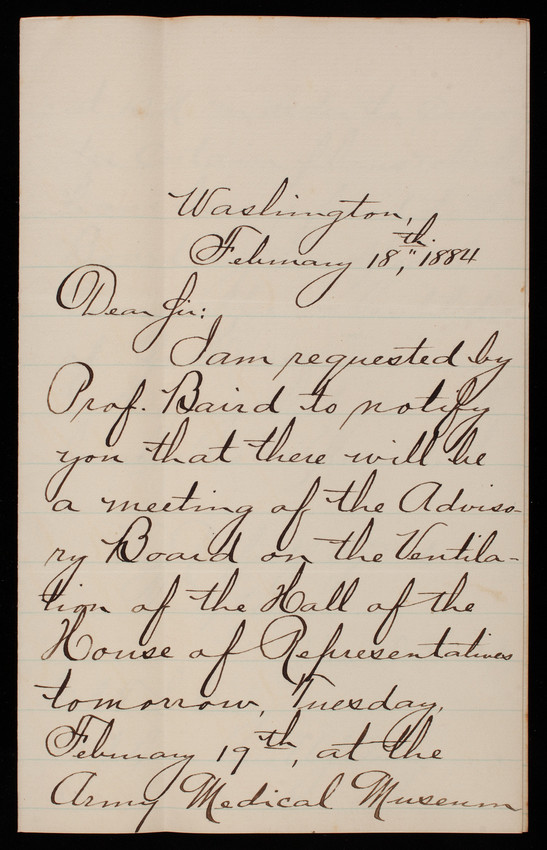 Washington,
February 18th., 1884
Dear Sir:
I am requested by
Prof. Baird to notify
you that there will be
a meeting of the Adviso-
ry Board on the Ventila-
tion of the Hall of the
House of Representatives
tomorrow, Tuesday,
February 19th, at the
Army Medical Museum